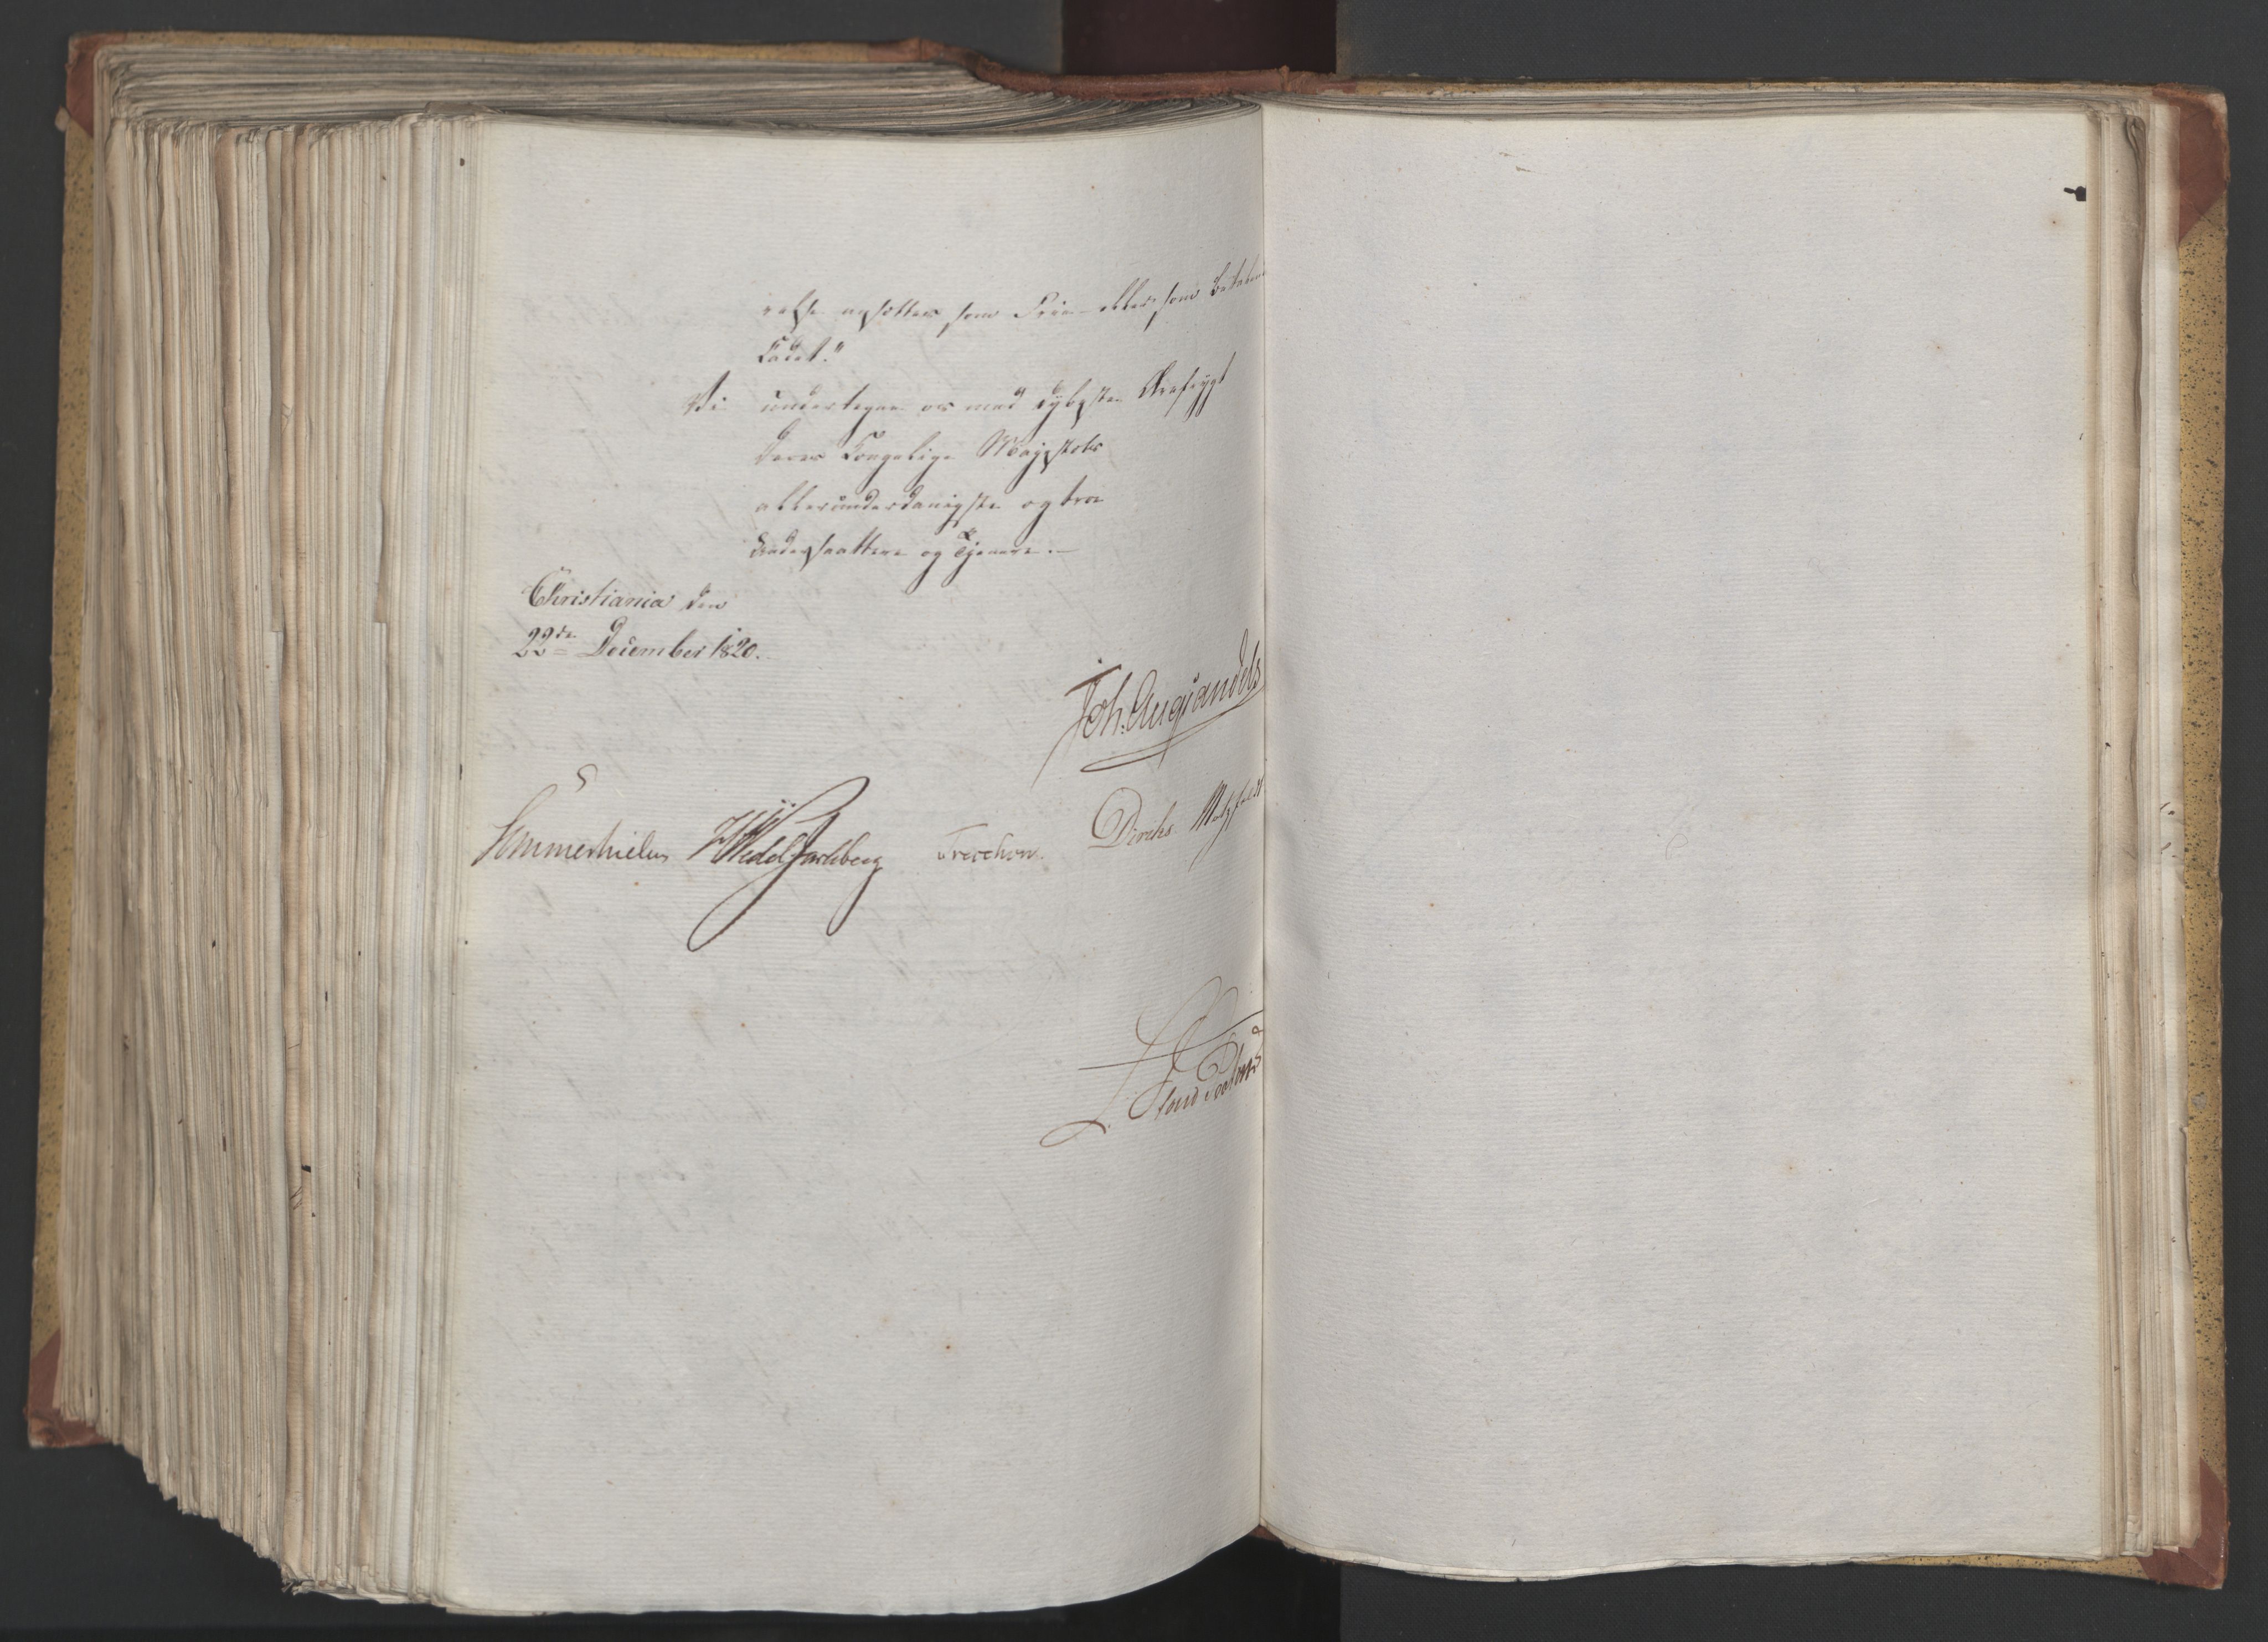 relse ansættes som Frie- eller som Betalende
Cadet."
Vi undertegne os med dybeste Ærefrygt
Deres Kongelige Majestæts
allerunderdanigste og troe
Undersaatter og Tjenere.—
Christiania den
22de December 1820.
Joh. Aug: Sandels
Sommerhielm HWedel Jarlsberg Treschow. Diriks Motzfeldt